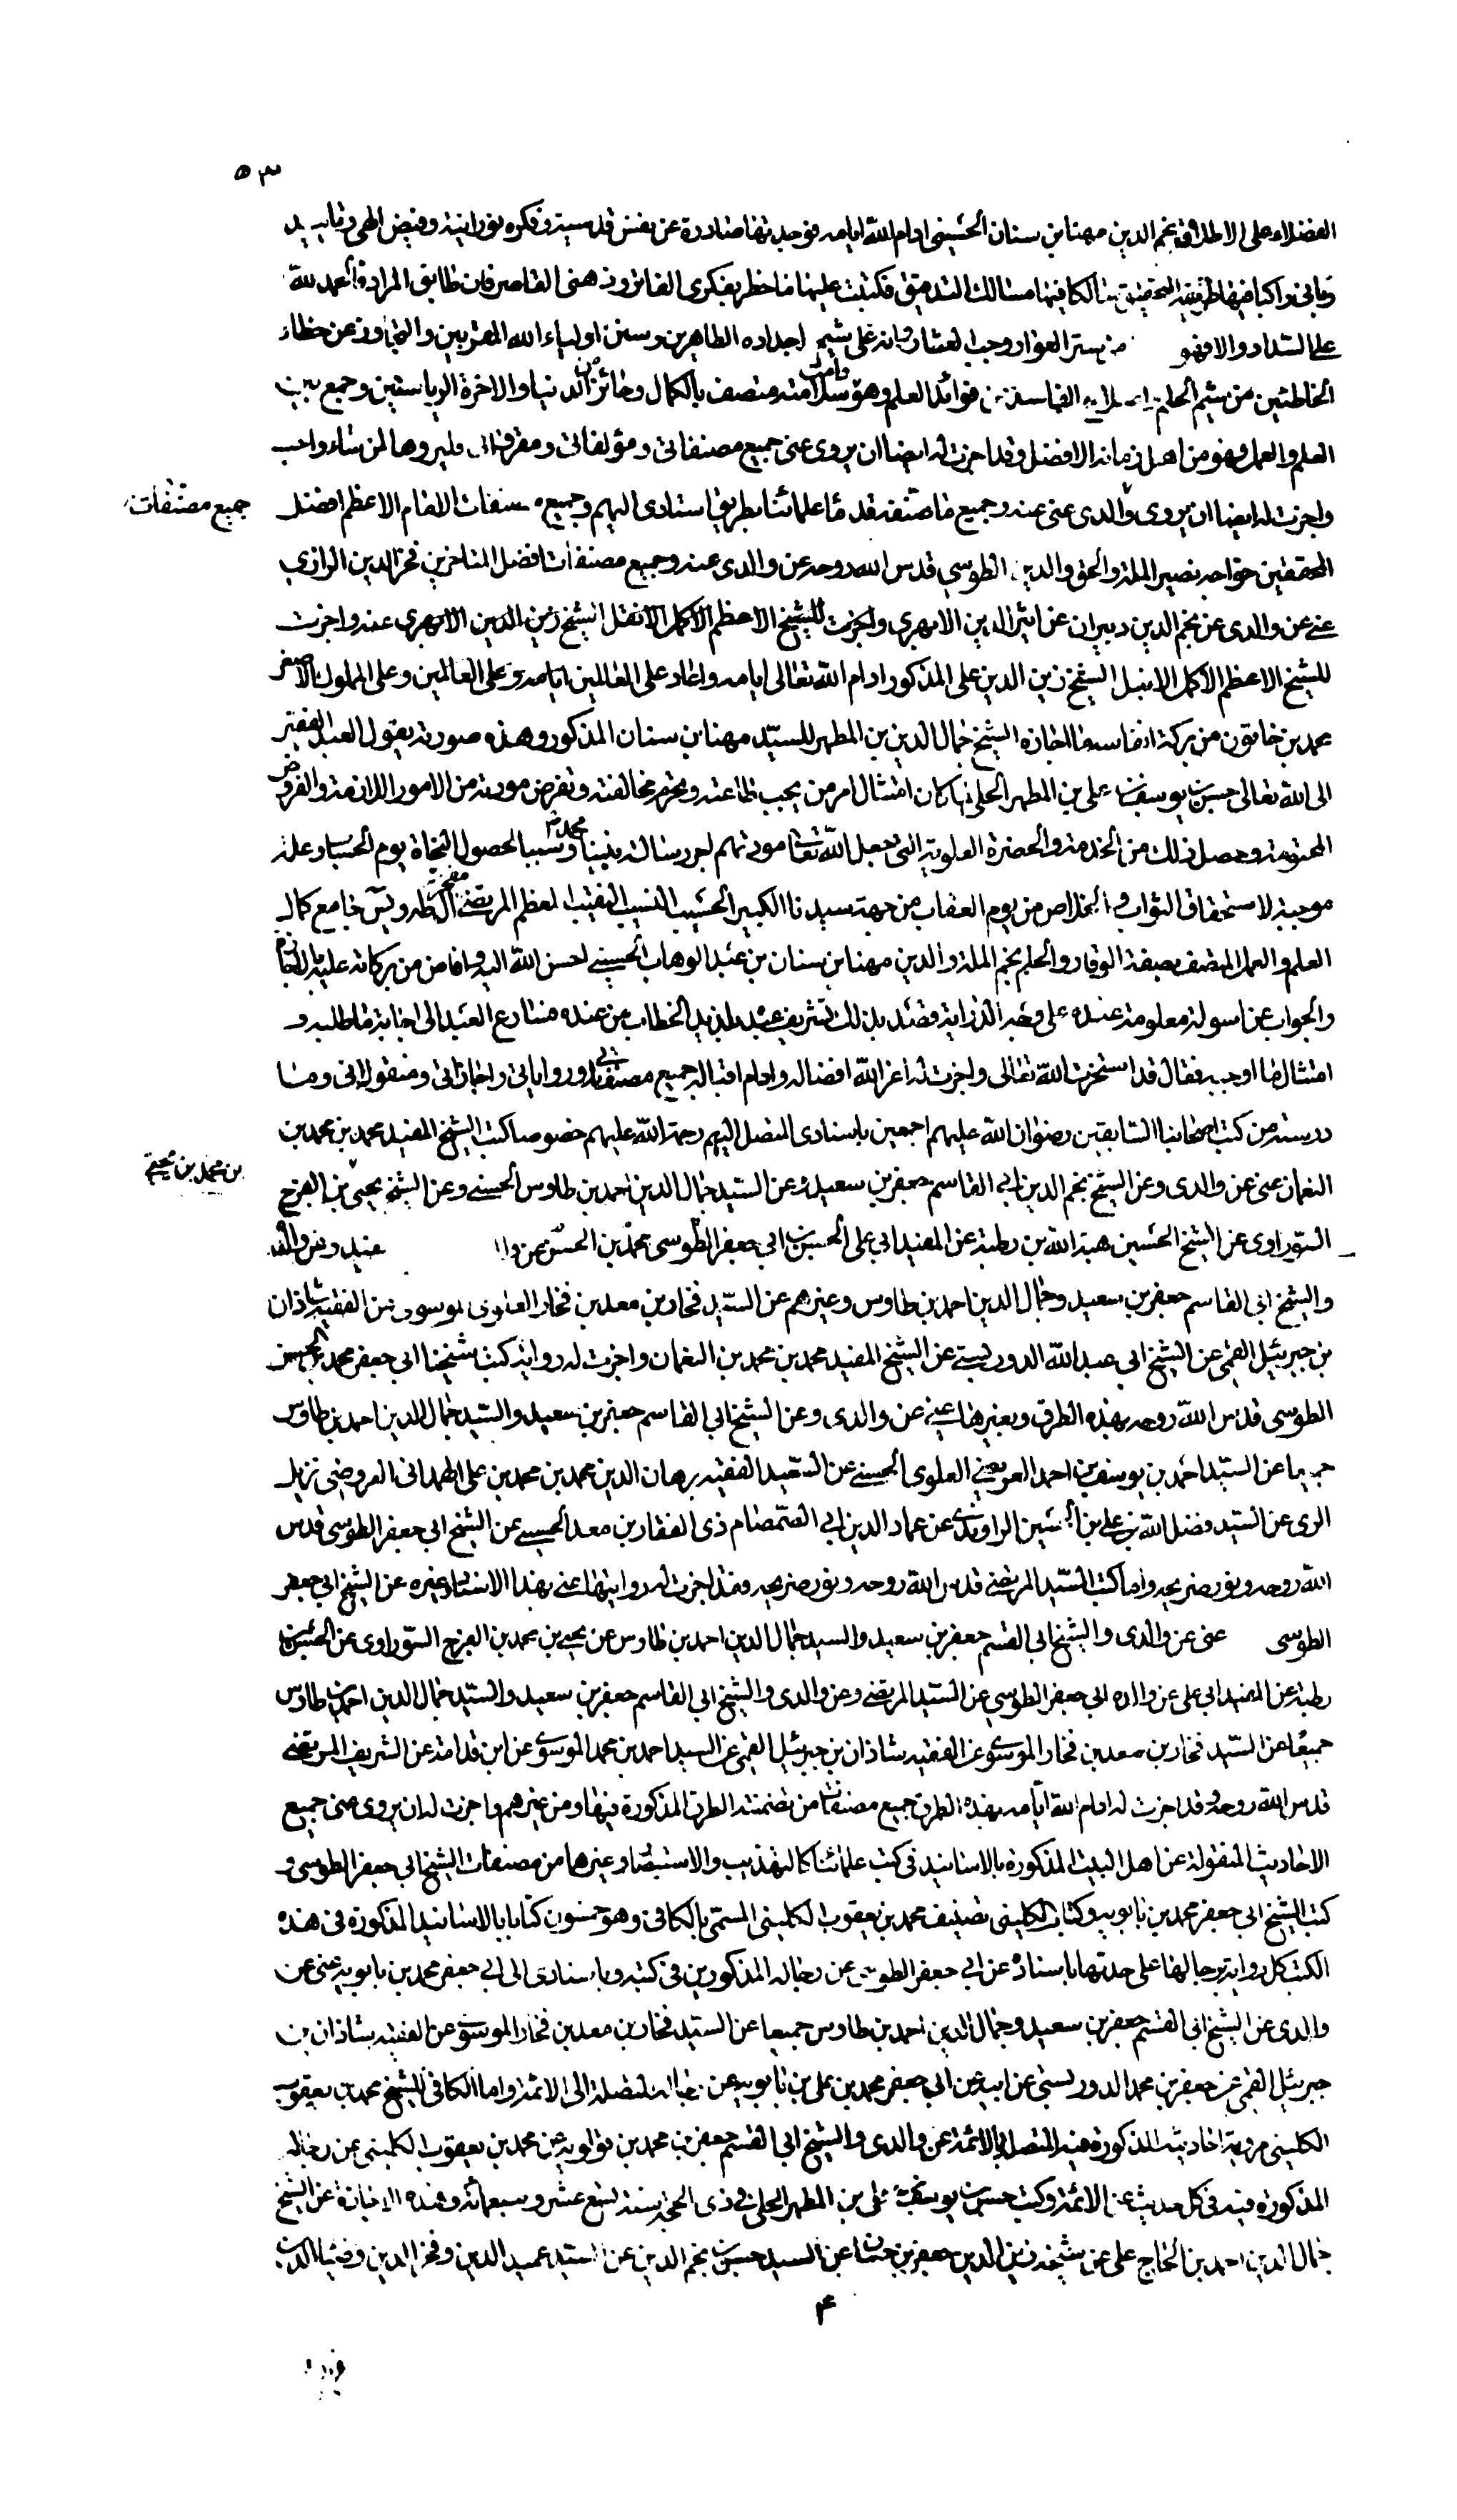 ٥٣
الفضلاء على الاطلاق نجم الدين مهنا بن سنان الحسيني ادام الله ايامه فوجدتها صادرة عن نفس قدسية وفكرة نورانية وفيض الهي وتاييد
رباني واكبا فيها طريقة التحقيق سالكا فيها مسالك التدقيق فكتبت عليها ما خطر بفكري الفاتر وذهني القاصر فان طابق المراد فالحمد لله
على السداد والا فهو من يستر العوار وجب العثار وانه على شيم اجداده الطاهرين وسنن اولياء الله المقربين والتجاوز عن خطاء
الخاطئين من شيم الحليم فوائد العلم وهو سلامته متصف بالكمال وحائز الدنيا والاخرة الرياستين وجمع بين
العلم والعمل وهو من اهل زمانه الافضل وقد اجزت له ايضا ان يروي عني جميع مصنفاتي ومؤلفاتي ومقرواتي فليروها لمن شاء واحب
واجزت له ايضا ان يروي والدي عني عنه وجميع ما صنفه قدماء علمائنا بطريق اسنادي اليهم وجميع مصنفات الامام الاعظم افضل
جميع مصنفات
المحققين خواجه نصير الملة والحق والدين الطوسي قدس الله روحه عن والدي عنه وجميع مصنفات افضل المتاخرين فخر الدين الرازي
عني عن والدي عن نجم الدين دبيران عن اثير الدين الابهري واجزت للشيخ الاعظم الاكمل الافضل الشيخ زين الدين الابهري عنه واجزت
للشيخ الاعظم الاكمل الانبل الشيخ زين الدين علي المذكور ادام الله تعالى ايامه واعاد على العالمين ايامه وعلى العالمين وعلى المملوك الاصغر
محمد بن خاتون من بركة انفاسه الاجازه الشيخ جمال الدين بن المطهر للسيد مهنا بن سنان المذكور وهذه صورته يقول العبد الفقير
الى الله تعالى حسن بن يوسف بن علي بن المطهر الحلي لما كان امتثال امر من يجب طاعته ويحرم مخالفته وتفرض مودته من الامور اللازمة والفروض
المحتومة وحصل ذلك من الخدمة والحضرة العلوية التي جعل الله تعالى مودتهم اجر رسالة نبينا محمد وسببا لحصول النجاة يوم الحساب وعلة
موجبة لاستحقاق الثواب والخلاص من يوم العقاب من جهة سيدنا الكبير الحسيب النسيب النقيب المعظم المرتضى مفخر آل طه ويس جامع كمال
العلم والعمل المتصف بصفة الوقار والحلم نجم الملة والدين مهنا بن سنان بن عبد الوهاب الحسيني احسن الله اليه وافاض من بركاته عليه بالاجازة
والجواب عن اسولة معلومة عنده على وجه الدراية فقصد بذلك تشريف عبده بلذيذ الخطاب من عنده فسارع العبد الى اجابة ما طلبه و
امتثال ما اوجبه فقال قد استخرت الله تعالى واجزت له اعز الله افضاله وادام اقباله جميع مصنفاتي ورواياتي واجازاتي ومنقولاتي وما
درسته من كتب اصحابنا السابقين رضوان الله عليهم اجمعين باسنادي المتصل اليهم رحمة الله عليهم خصوصا كتب الشيخ المفيد محمد بن محمد بن
النعمان عني عن والدي وعن الشيخ نجم الدين ابي القاسم جعفر بن سعيد وعن السيد جمال الدين احمد بن طاوس الحسني وعن الشيخ يحيى بن الفرج
بن محمد بن يحيى
السوراوي عن الشيخ الحسين هبة الله بن رطبة عن المفيد ابي علي الحسن بن ابي جعفر الطوسي محمد بن الحسن عن وعن والدي
والشيخ ابي القاسم جعفر بن سعيد وجمال الدين احمد بن طاوس وغيرهم عن السيد فخار بن معد بن فخار العلوي الموسوي عن الفقيه شاذان
بن جبرئيل القمي عن الشيخ ابي عبد الله الدوريستي عن الشيخ المفيد محمد بن محمد بن النعمان واجزت له رواية كتب شيخنا ابي جعفر محمد بن الحسن
الطوسي قدس الله روحه بهذه الطرق وبغيرها عني عن والدي وعن الشيخ ابي القاسم جعفر بن سعيد والسيد جمال الدين احمد بن طاوس
جميعا عن السيد احمد بن يوسف بن احمد العريضي العلوي الحسيني عن السعيد الفقيه برهان الدين محمد بن محمد بن علي الهمداني القزويني نزيل
الري عن السيد فضل الله بن علي بن الحسين الراوندي عن عماد الدين ابي الصمصام ذي الفقار بن معد الحسيني عن الشيخ ابي جعفر الطوسي قدس
الله روحه ونور ضريحه واما كتب السيد المرتضى قدس الله روحه ونور ضريحه فقد اجزت له روايتها عني بهذا الاسناد وغيره عن الشيخ ابي جعفر
الطوسي عني عن والدي والشيخ ابي القسم جعفر بن سعيد والسيد جمال الدين احمد بن طاوس عن يحيى بن محمد بن الفرج السوراوي عن الحسين بن
رطبة عن المفيد ابي علي عن والده ابي جعفر الطوسي عن السيد المرتضى وعن والدي والشيخ ابي القاسم جعفر بن سعيد والسيد جمال الدين احمد بن طاوس
جميعا عن السيد فخار بن معد بن فخار الموسوي عن الفقيه شاذان بن جبرئيل القمي عن السيد احمد بن محمد الموسوي عن ابن قدامة عن الشريف المرتضى
قدس الله روحه وقد اجزت له ادام الله ايامه بهذه الطرق جميع مصنفات من تضمنته الطرق المذكورة فيها ومن غيرهم واجزت له ان يروي عني جميع
الاحاديث المنقولة عن اهل البيت المذكورة بالاسانيد في كتب علمائنا كالتهذيب والاستبصار وغيرهما من مصنفات الشيخ ابي جعفر الطوسي و
كتب الشيخ ابي جعفر محمد بن بابويه وكتاب الكليني تصنيف محمد بن يعقوب الكليني المسمى بالكافي وهو خمسون كتابا بالاسانيد المذكورة في هذه
الكتب كل رواية برجالها على حدتها باسناده عن ابي جعفر الطوسي عن رجاله المذكورين في كتبه وباسنادي الى ابي جعفر محمد بن بابويه عني عن
والدي عن الشيخ ابي القسم جعفر بن سعيد وجمال الدين احمد بن طاوس جميعا عن السيد فخار بن معد بن فخار الموسوي عن الفقيه شاذان بن
جبرئيل القمي عن جعفر بن محمد الدوريستي عن ابيه عن ابي جعفر محمد بن علي بن بابويه عن رجاله المتصلة الى الائمة واما الكافي للشيخ محمد بن يعقوب
الكليني فرويت احاديثه المذكورة فيه المتصل بالائمة عن والدي والشيخ ابي القسم جعفر بن محمد بن قولويه عن محمد بن يعقوب الكليني عن رجاله
المذكورة فيه في كل حديث عن الائمة وكتب حسن بن يوسف بن علي بن المطهر الحلي في ذي الحجة سنة تسع عشر وسبعمائة وهذه الاجازة عن الشيخ
جمال الدين احمد بن الحاج علي عن شيخه زين الدين جعفر بن حسام عن السيد حسن بن نجم الدين عن السيد عميد الدين وفخر الدين وضياء الدين